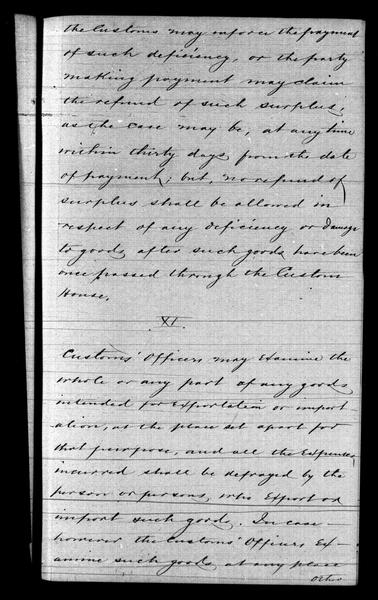 the Customs may enforce the payment
of such deficiency, or the party
making payment may claim
the refund of such surplus,
as the case may be, at any time
within thirty days from the date
of payment; but, no refund of
surplus shall be allowed in
respect of any deficiency or damage
to goods after such goods have been
once passed through the Custom
House.
XI.
Customs' Officers may Examine the
whole or any part of any goods
intended for Exportation or import-
ation, at the place set apart for
that purpose, and all the Expenses
incurred shall be defrayed by the
person or persons, who Export or
import such goods. In case
however the Customs' Officers Ex-
amine such goods at any place
other